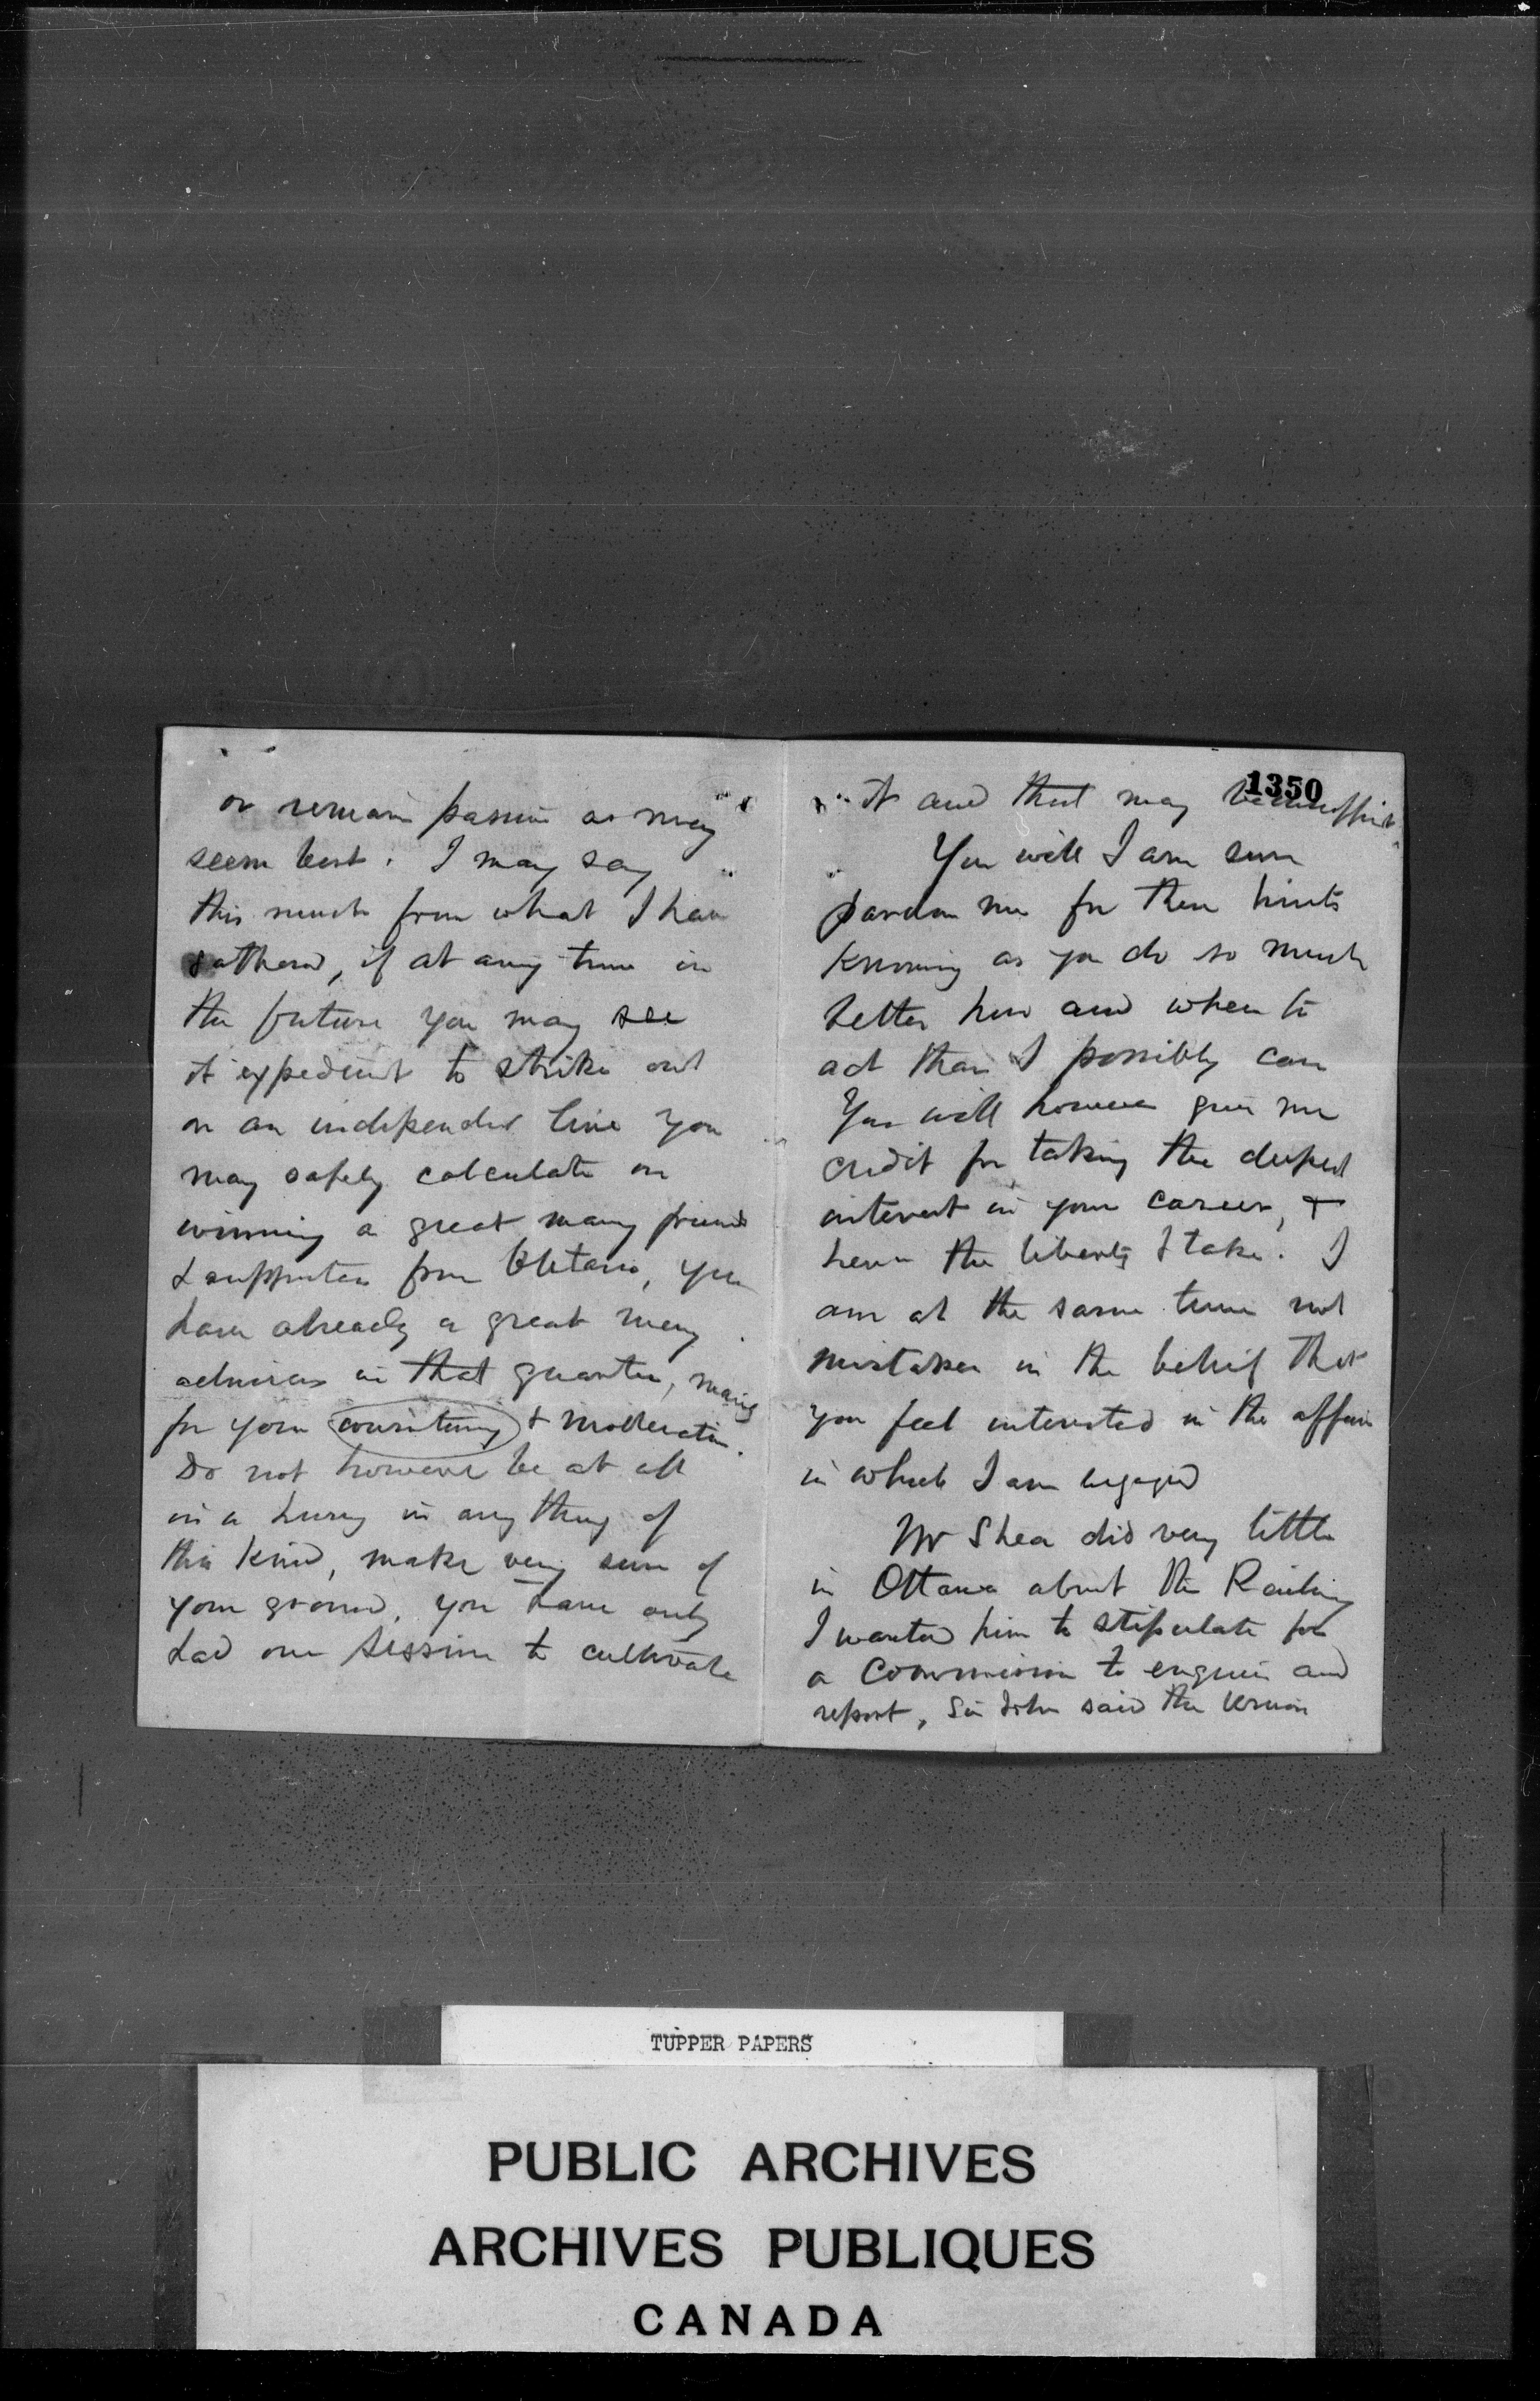 or remain passive as may
seem best. I may say
this much from what I have
gathered, if at any time in
the future you may see
it expedient to strike out
on an independent line you
may safely calculate on
winning a great many friends
& supporters from Ontario, you
have already a great many
admirers in that quarter, many
for your & moderation.
Do not however be at all
in a hurry in any thing of
this kind, make very sure of
your ground, you have only
had one session to cultivate
1350
it and that may be insufficient
You will I am sure
pardon me for these hints
knowing as you do so much
better how and when to
act than I possibly can
You will however give me
credit for taking the deepest
interest in your career, +
hence the liberty I take. I
am at the same time not
mistaken in the belief that
you feel interested in the affair
in which I am engaged
Mr Shea did very little
in Ottawa about the Railway
I wanted him to stipulate for
a Commission to enquire and
report, Sir John said the Union
TUPPER PAPERS
PUBLIC ARCHIVES
ARCHIVES PUBLIQUES
CANADA